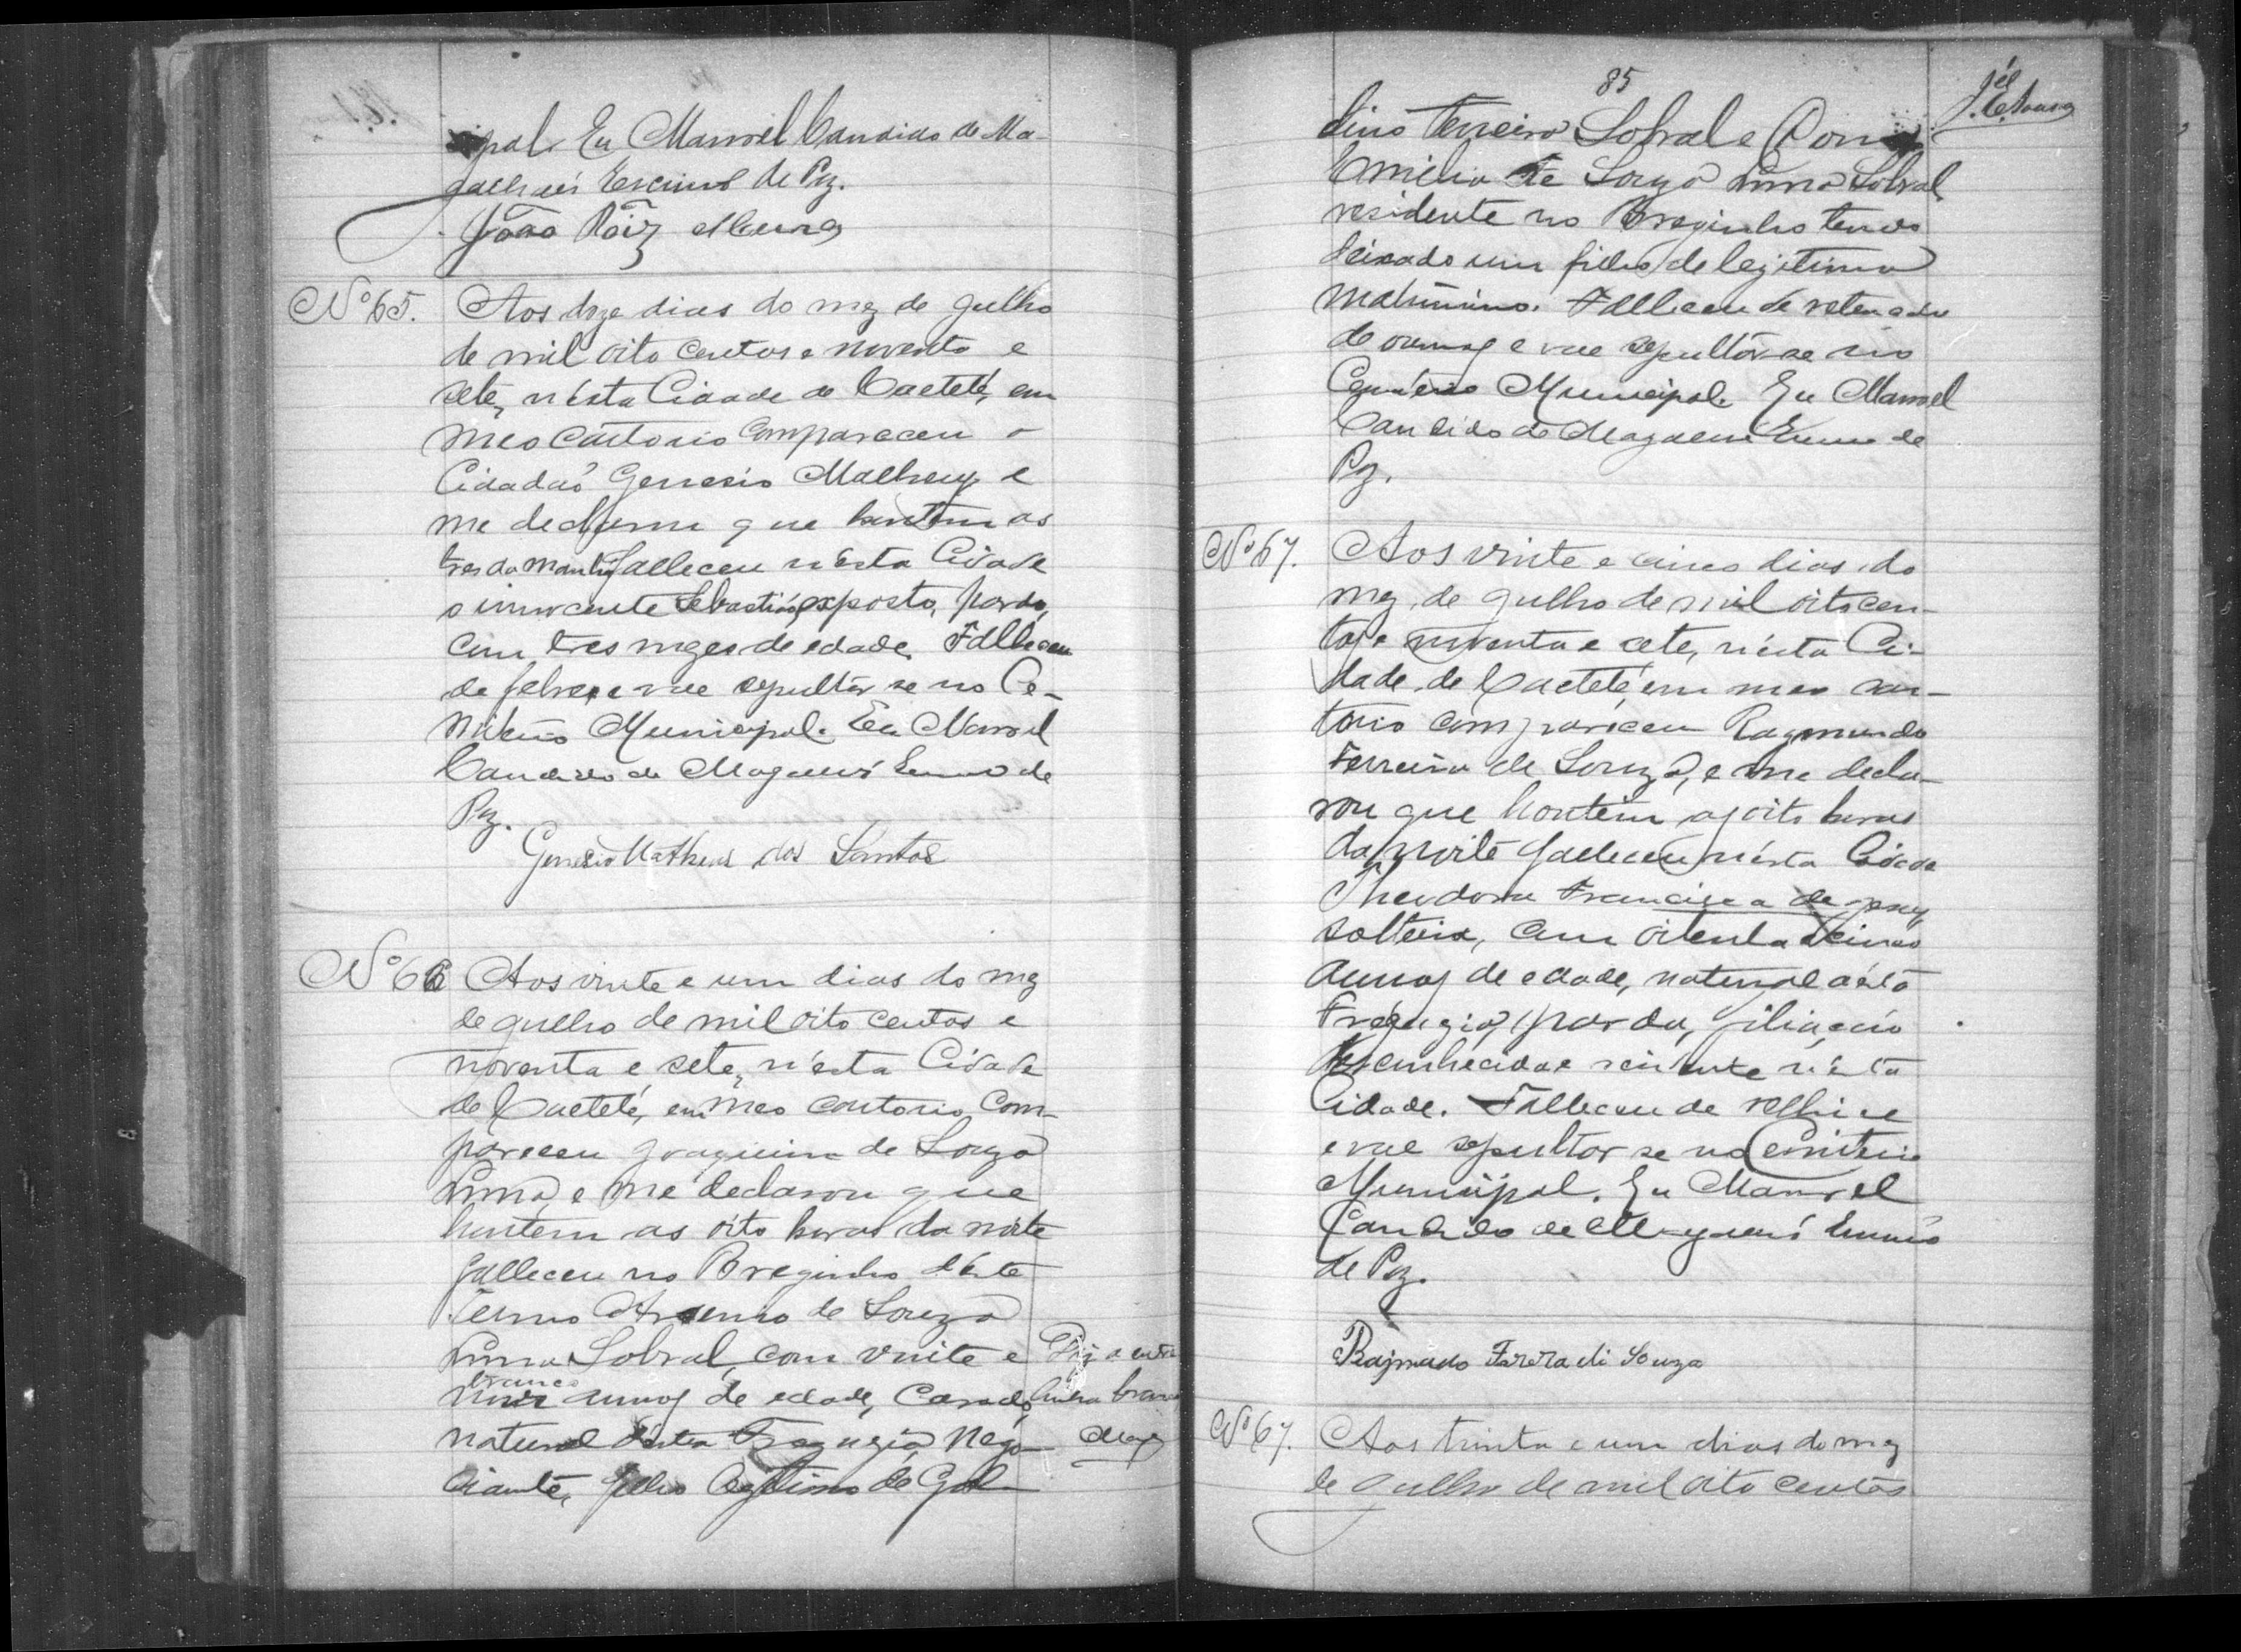 pal. Eu Manoel Candido de Ma-
galhães Escrivão de Paz.
João Roiz
Nº 65. Aos doze dias do mez de Julho
de mil oito centos e noventa e
sete, n'esta Cidade de Caeteté, em
meo cartorio compareceu o
Cidadão Genesio Matheus e
me declarou que hontem as
tres da manhã falleceu n'esta Cidade
o innocente Sebastião, exposto, pardo,
com tres mezes de edade. Falleceu
de febre, e vae sepultar se no Ce-
miterio Municipal. Eu Manoel
Candido de Magalhães Escrivão de
Paz.
Genesio Matheus dos Santos
Nº 66 Aos vinte e um dias do mez
de Julho de mil oito centos e
noventa e sete, n'esta Cidade
de Caeteté, em meo cartorio com-
pareceu Joaquim de Souza
Lima, e me declarou que
hontem as oito horas da noite
falleceu no Breginho d'este
Termo Arsenio de Souza
Lima Sobral, com vinte e
branco
nove annos de edade, casado,
natural d'esta Freguezia, nego-
ciante, filho legitimo de Gal-
85
dino Terreiro Sobral e Dona
Emilia de Souza Lima Sobral
residente no Breginho tendo
deixado um filho de legitimo
matrimonio. Falleceu de retenção
de e vae sepultar-se no
Cemiterio Municipal. Eu Manoel
Candido de Magalhães Escrivão de
Paz.
Nº 67. Aos vinte e cinco dias do
mez de Julho de mil oito cen-
tos e noventa e sete, n'esta Ci-
dade de Caeteté, em meo car-
torio compareceu Raymundo
Ferreira de Souza, e me decla-
rou que hontem as oito horas
da noite falleceu n'esta Cidade
Theodora Francisca de Jesus,
solteira, com oitenta e cinco
annos de edade, natural d'esta
Freguezia, parda, filiação
desconhecida e residente n'esta
Cidade. Falleceu de velhice
e vae sepultar se no Cemiterio
Municipal. Eu Manoel
Candido de Magalhães Escrivão
de Paz.
Rajmado Farera di Souza
Nº 67. Aos trinta e um dias do mez
de Julho de mil oito centos